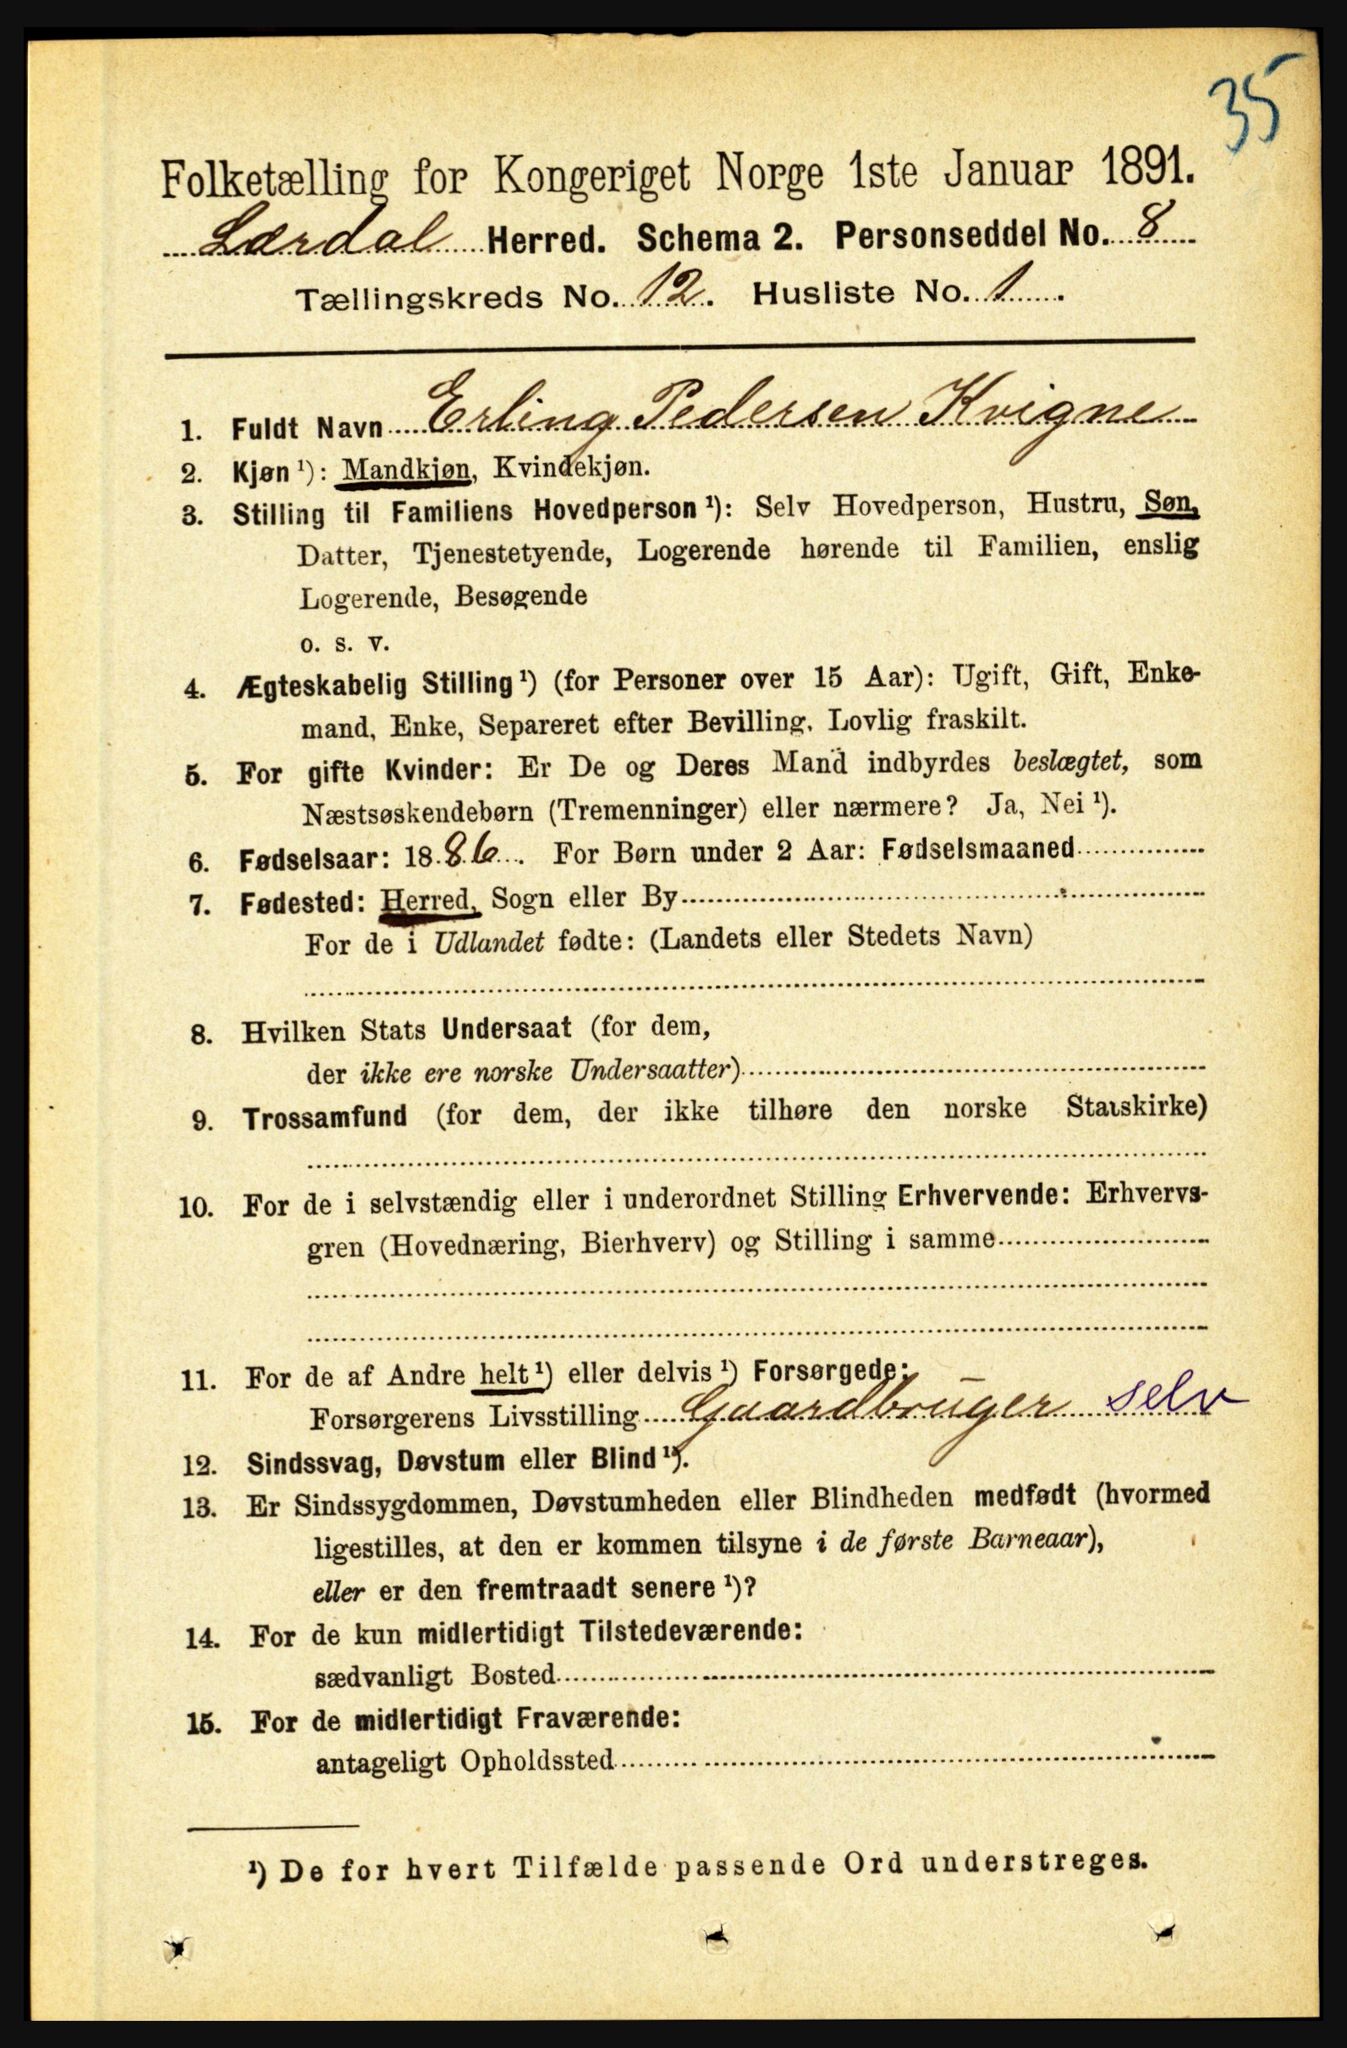 35
Folketælling for Kongeriget Norge 1ste Januar 1891.
Lærdal Herred. Schema 2. Personseddel No. 8
Tællingskreds No. 12. Husliste No. 1.
1. Fuldt Navn Erling Pedersen Kvigne
2. Kjøn ¹): Mandkjøn, Kvindekjøn.
3. Stilling til Familiens Hovedperson ¹): Selv Hovedperson, Hustru, Søn,
Datter, Tjenestetyende, Logerende hørende til Familien, enslig
Logerende, Besøgende
o. s. v.
4. Ægteskabelig Stilling ¹) (for Personer over 15 Aar): Ugift, Gift, Enke-
mand, Enke, Separeret efter Bevilling, Lovlig fraskilt.
5. For gifte Kvinder: Er De og Deres Mand indbyrdes beslægtet, som
Næstsøskendebørn (Tremenninger) eller nærmere? Ja, Nei ¹).
6. Fødselsaar: 1886. For Børn under 2 Aar: Fødselsmaaned
7. Fødested: Herred, Sogn eller By
For de i Udlandet fødte: (Landets eller Stedets Navn)
8. Hvilken Stats Undersaat (for dem,
der ikke ere norske Undersaatter)
9. Trossamfund (for dem, der ikke tilhøre den norske Statskirke)
10. For de i selvstændig eller i underordnet Stilling Erhvervende: Erhvervs-
gren (Hovednæring, Bierhverv) og Stilling i samme
11. For de af Andre helt ¹) eller delvis ¹) Forsørgede:
Forsørgerens Livsstilling Gaardbruger selv
12. Sindssvag, Døvstum eller Blind ¹).
13. Er Sindssygdommen, Døvstumheden eller Blindheden medfødt (hvormed
ligestilles, at den er kommen tilsyne i de første Barneaar),
eller er den fremtraadt senere ¹)?
14. For de kun midlertidigt Tilstedeværende:
sædvanligt Bosted
15. For de midlertidigt Fraværende:
antageligt Opholdssted
¹) De for hvert Tilfælde passende Ord understreges.